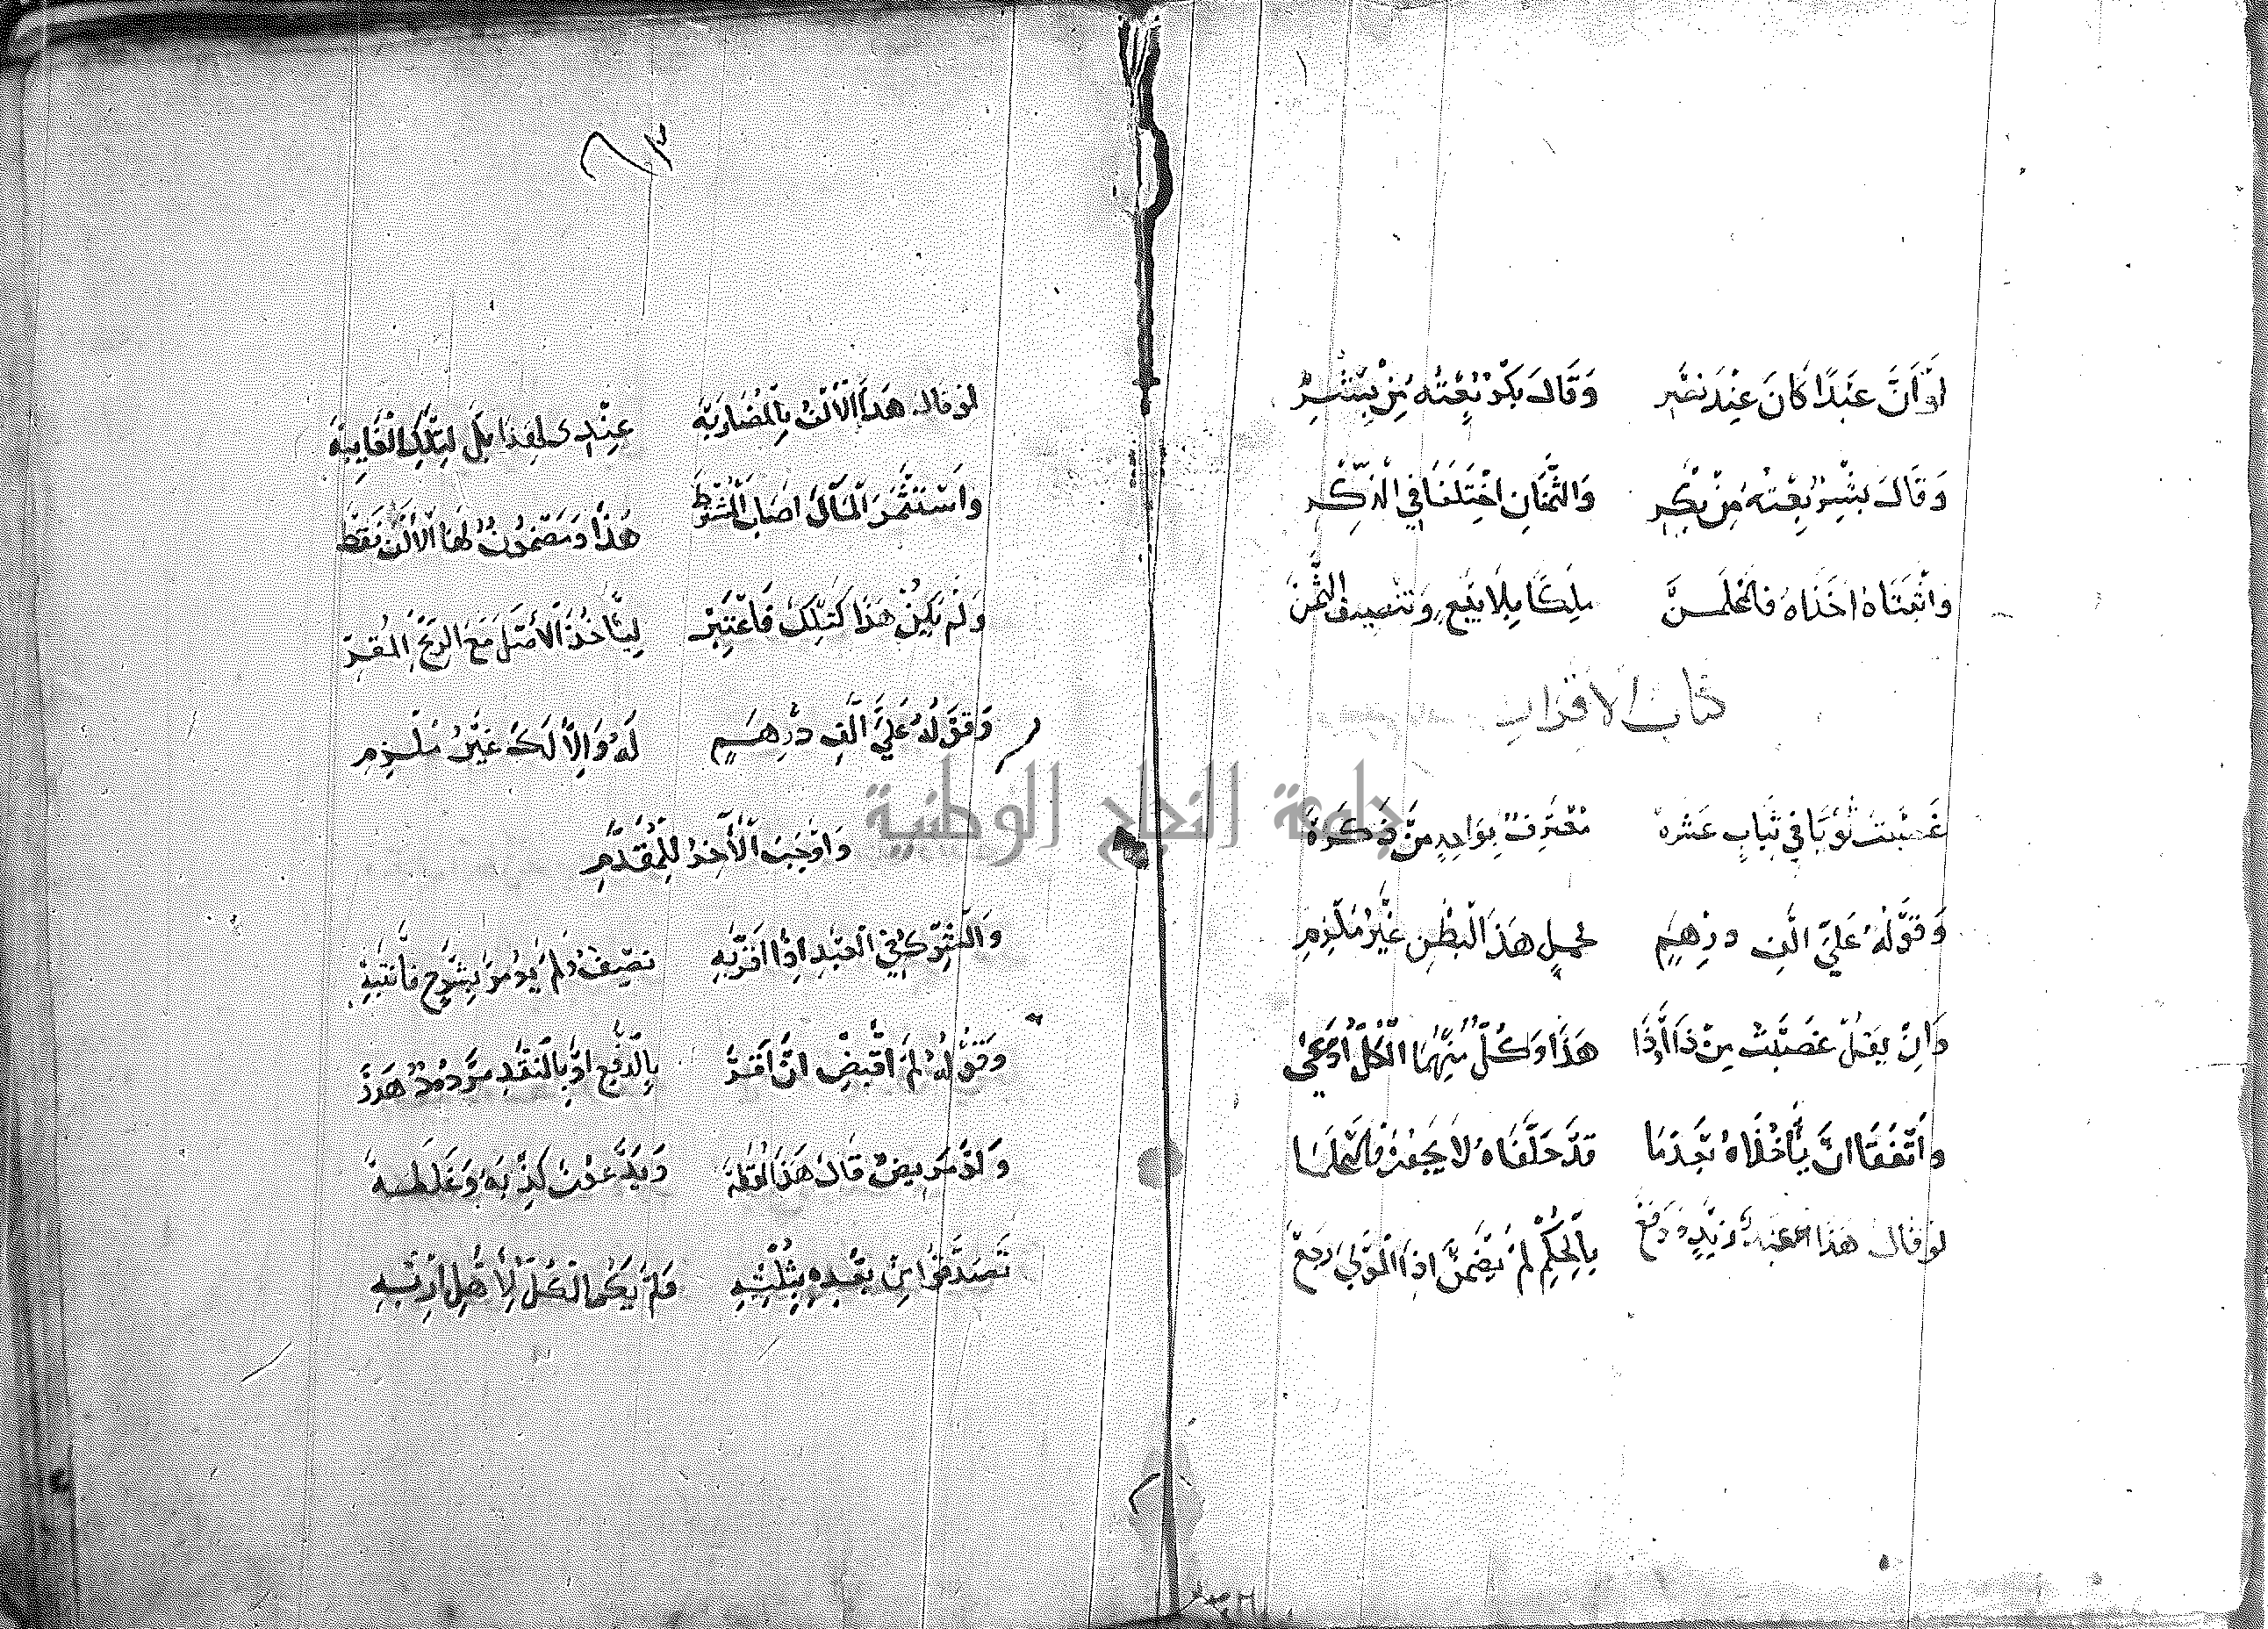 لو ان عبدا كان عند نصر وقال بكر بعته من بشر
وقال بشر بعته من بكر والثمنان اختلفا في الذكر
واثبتاه اخذاه فاعلمن ملكا بلا بيع وتنصيف الثمن
كتاب الاقرار
غصبت ثوبا في ثياب عشره معترف بواحد من ذكره
وقوله علي الف درهم لحمل هذا البطن غير ملزم
وان يقل غصبت من ذا او ذا هذا وكل منهما الكل ادعى
واتفقا ان ياخذاه بعد ما قد حلفاه لا يجوز فاعلما
لو قال هذا العبد زيد ودفع بالحكم لم يضمن اذا المولى رجع
لو قال هذا الالف بالمضاربه عندي لهذا بل لتلك الغايبه
واستثمر المال اصاب الشرط هذا ومضمون لها الالف فقط
ولم يكن هذا كتلك فاعتبر لياخذ الاصل مع الربح المقر
وقوله علي الف درهم له والا لك غير ملزم
واوجب الاخذ للمقدم
والشرك في العبد اذا اقر به نصف ولم يومر بشرح فانتبه
وقوله لم اقبض ان اقر بالدفع او بالنقد مردود هدر
ولو مريض قال هذا لقطه ويدعون كذبه وغلطه
تصدقوا من بعده بثلثه ولم يكن الكل لاهل ارثه
جامعة النجاح الوطنية